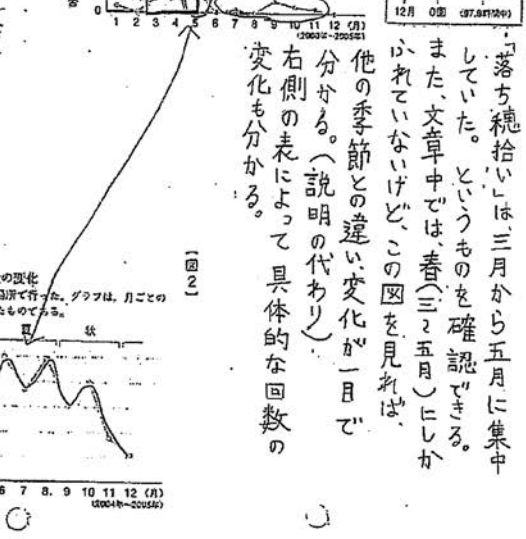 12月 0回 (97.8時間中)
0
1 2 3 4 5 6 7 8 9 10 11 12 (月)
(2003年~2005年)
「落ち穂拾い」は、三月から五月に集中
していた。というものを確認できる。
また、文章中では、春(三~五月)にしか
ふれていないけど、この図を見れば、
他の季節との違い、変化が一目で
分かる。(説明の代わり)
右側の表によって具体的な回数の
変化も分かる。
【図2】
の変化
場所で行った。グラフは、月ごとの
たものである。
夏 秋
6 7 8 9 10 11 12 (月)
(2004年~2005年)